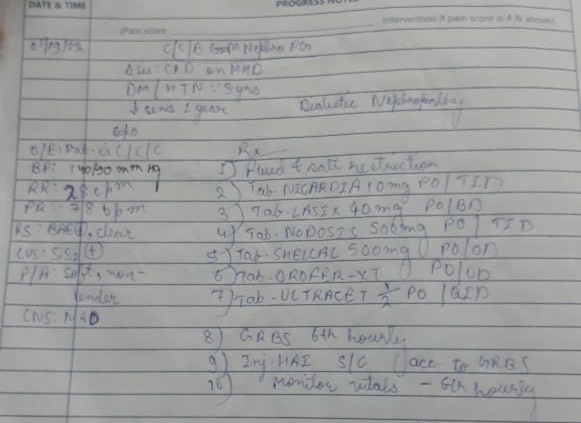 DATE & TIME
PROGRESS NOTES
(Pain score
intervention if pain score is 4 & above)
C/S/B Nephro PGs
CKD on MHD
DM / HTN : 3 yrs
since 1 year
Diabetic Nephropathy
c/o
O/E: Pat. is C/C/C
Rx
BP: 140/90 mm Hg
1) Fluid & salt restriction
RR: 28 cpm
2) Tab. NICARDIA 10mg PO/TID
PR: 78 bpm
3) Tab. LASIX 40mg PO/BD
RS: BAE⊕, clear
4) Tab. NODOSIS 500mg PO/TID
CVS: S1S2 ⊕
5) Tab. SHELCAL 500mg PO/OD
P/A: Soft, non-
6) Tab. OROFER-XT PO/OD
tender
7) Tab. ULTRACET 1/2 PO/QID
CNS: NAD
8) GRBS 6th hourly
9) Inj. HAI S/C acc. to GRBS
10) Monitor vitals - 6th hourly